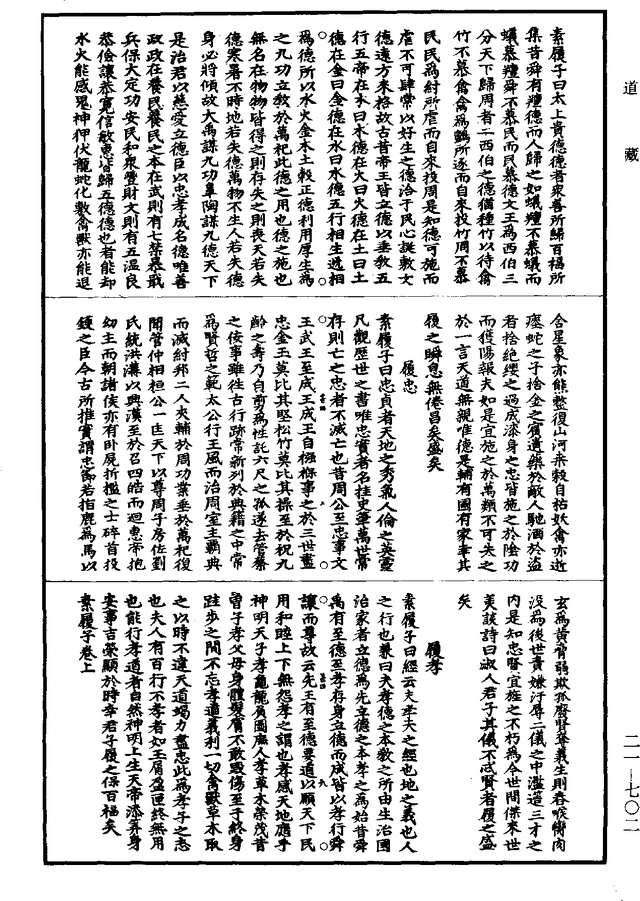 道藏
二一—七〇二
素履子曰太上貴德德者衆善所歸百福所
集昔舜有羶德而人歸之如蟻羶不慕蟻而
蟻慕羶舜不慕民而民慕德文王爲西伯三
分天下歸周者二西伯之德猶種竹以待禽
竹不慕禽禽爲鸇所逐而自來投竹周不慕
民民爲紂所虐而自來投周是知德可施而
虐不可肆常以好生之德洽于民心誕敷文
德遠方來格故古昔帝王皆立德以垂教五
行五帝在木曰木德在火曰火德在土曰土
德在金曰金德在水曰水德五行相生遞相
爲德所以水火金木土穀正德利用厚生爲
之九功立教於萬祀此德之用也德之施也
無名在物物皆得之則存失之則喪天若失
德寒暑不時地若失德萬物不生人若失德
身必將傾故大禹謀九功臯陶謀九德天下
是治君以慈愛立德臣以忠孝成名德唯善
政政在養民養民之本在武則有七禁暴戢
兵保大定功安民和衆豐財文則有五温良
恭儉讓恭寬信敏惠皆歸五德德也者能却
水火能感鬼神狎伏龍蛇化敷禽獸亦能退
含星象亦能整復山河柰穀自枯妖禽亦逝
瘞蛇之子捨金之賓遺藥於敵人馳酒於盜
者捨絶纓之過成漆身之忠皆施之於陰功
而獲陽報夫如是宜施之於萬類不可失之
於一言天道無親唯德是輔有國有家聿其
履之瞬息無倦昌矣盛矣
履忠
素履子曰忠貞者天地之秀氣人倫之英靈
凡觀歷世之書唯忠實者名挂史筆萬世常
存則亡之忠者不滅亡也昔周公至忠事文
王武王至成王成王自襁褓事之於三世盡
忠金玉莫比其堅松竹莫比其操至於祝九
齡之壽乃自剪爲性託六尺之孤遂去管蔡
之侫事雖往古行跡常新列於典籍之中常
爲賢哲之範太公行王風而治周室主霸典
而滅紂邦二人夾輔於周功業垂於萬祀復
聞管仲相桓公一匡天下以尊周子房佐劉
氏統洪溝以興漢至於召四皓而迴惠帝抱
幼主而朝諸侯亦有卧屍折檻之士碎首投
鑊之臣今古所推實謂忠節若指鹿爲馬以
玄爲黄脅弱欺孤廢賢奪義生則吞喉臠肉
没爲後世責嫌汙辱二儀之中濫造三才之
内是知忠賢宜旌之不朽爲今世間傑來世
美談詩曰淑人君子其儀不忒賢者履之盛
矣
履孝
素履子曰經云夫孝天之經也地之義也人
之行也兼曰夫孝德之本教之所由生治國
治家者立德爲先立德之本孝之爲始昔舜
禹有至德至孝存身立德而成皆以孝行舜
讓而尊故云先王有至德要道以順天下民
用和睦上下無怨孝之謂也孝感天地應乎
神明天子孝龜龍負圖庶人孝草木榮茂昔
曽子孝父母身體髮膚不敢毁傷至于終身
跬步之間不忘孝道義利一切禽獸草木取
之以時不違天道竭力盡忠此爲孝子之志
也夫人有百行不孝者如玉屑盈匣終無用
也能行孝道者自然神明上生天帝添筭身
安事吉榮顯於時幸君子履之保百福矣
素履子卷上